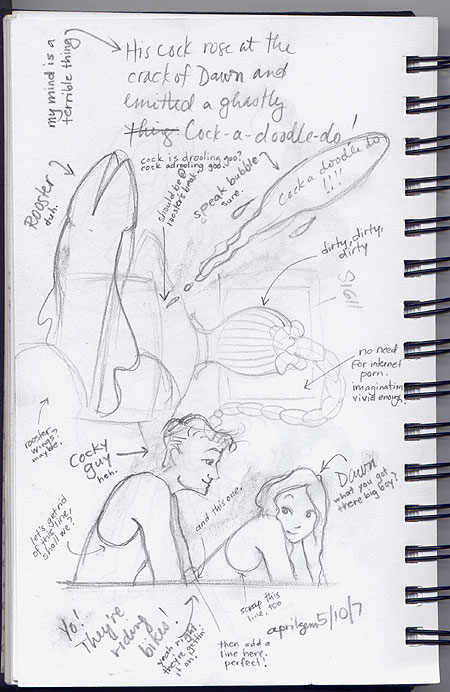 my mind is a
terrible thing
His cock rose at the
crack of Dawn and
emitted a ghastly
Thing Cock-a-doodle-do!
cock is drooling goo?
cock adrooling goo.
should be @
roosters beak.
speak bubble
sure.
Cock a doodle do
!!!!
Rooster
duh.
dirty, dirty,
dirty
SIGH
no need
for internet
porn.
imagination
vivid enough.
rooster
wings?
maybe.
Cocky
guy
heh.
and this one.
Dawn
what you got
there big boy?
let's get rid
of this line,
shall we?
scrap this
line, too
Yo!
They're
riding
bikes!
yeah right
they're gettin'
it on!
then add a
line here.
perfect!
aprilgem 5/10/7